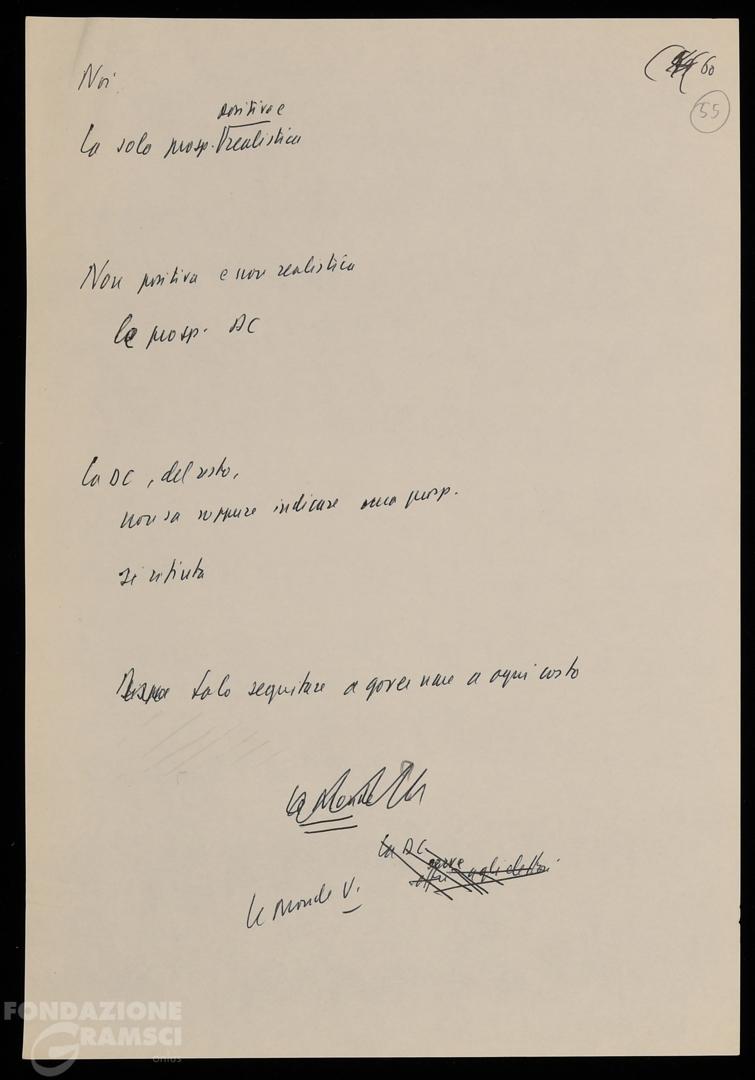 60
55
Noi
positiva e
La sola prosp. realistica
Non positiva e non realistica
la prosp. DC
La DC, del resto,
non sa neppure indicare una prosp.
si rifiuta
solo seguitare a governare a ogni costo
Le Monde
La DC
serve
offre agli elettori
Le Monde V.
FONDAZIONE
GRAMSCI
onlus